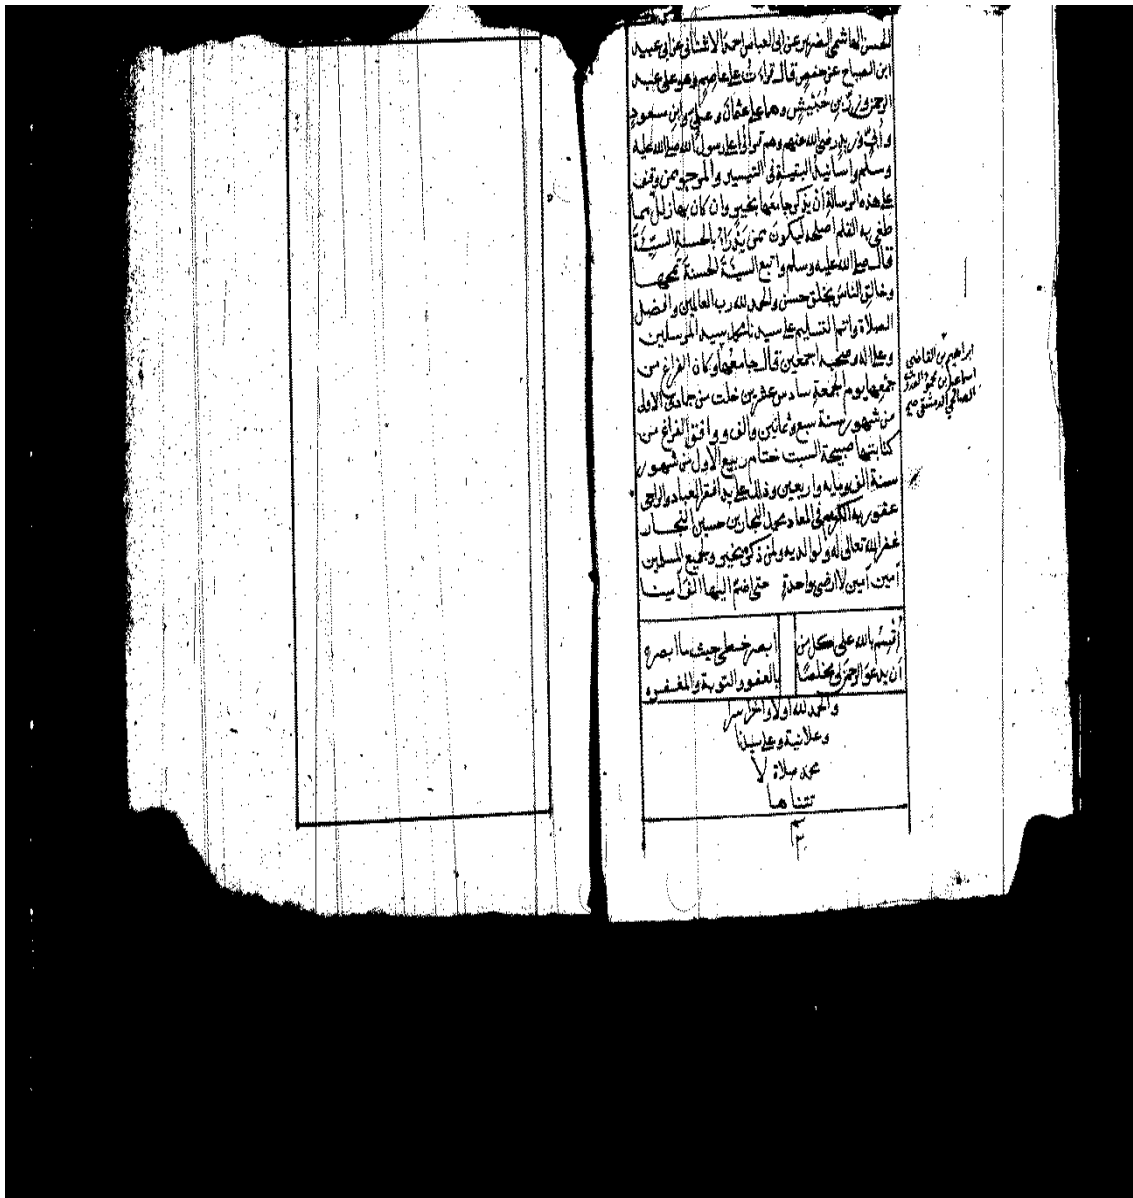 الحسن الهاشمي الضرير عن ابي العباس احمد الاشناني عن ابي عبيد
ابن الصباح عن حفص قال قرات على عاصم وهو على عبد
الرحمن وزر بن حُبَيْشٍ وهما على عثمان وعلي وابن سعود
وأُبَيٍّ وزيد رضي الله عنهم وهم قروا على رسول الله صلى الله عليه
وسلم واسانيد البقية في التيسير والمرجو ممن وقف
على هذه الرسالة ان يذكر جامعها بخير وان كان بها زلل مما
طغى به القلم اصلحه ليكون ممن يَدْرَاُ بالحسنةِ السيّئَةَ
قال صلى الله عليه وسلم واتبع السيئة الحسنة تمحها
وخالق الناس بخلق حسن والحمد لله رب العالمين وافضل
الصلاة واتم التسليم على سيدنا محمد سيد المرسلين
وعلى اله وصحبه اجمعين قال جامعها وكان الفراغ من
جمعها يوم الجمعة سادس عشرين خلت من جمادى الاولى
من شهور سنة سبع وثمانين والف ووافق الفراغ من
كتابتها صبيحة السبت ختام ربيع الاول من شهور
سنة الف ومايه واربعين وذلك على يد افقر العباد والراجي
عفو ربه الكريم في المعاد محمد النجار بن حسين النجار
غفر الله تعالى له ولوالديه ولمن ذكره بخير ولجميع المسلمين
آمين آمين لا ارضى بواحدةٍ حتى اضمَّ اليها الف آمينا
أُقسِمُ بالله على كل من ابصر خطي حيث ما ابصره
ان يدعوَ الرحمنَ لي مخلصًا بالعفو والتوبة والمغفره
والحمد لله اولا واخرا سرا
وعلانية وعلى سيدنا
محمد صلاة لا
تتناها
ابراهيم بن القاضي
اسماعيل بن محمود
الصالحي الدمشقي